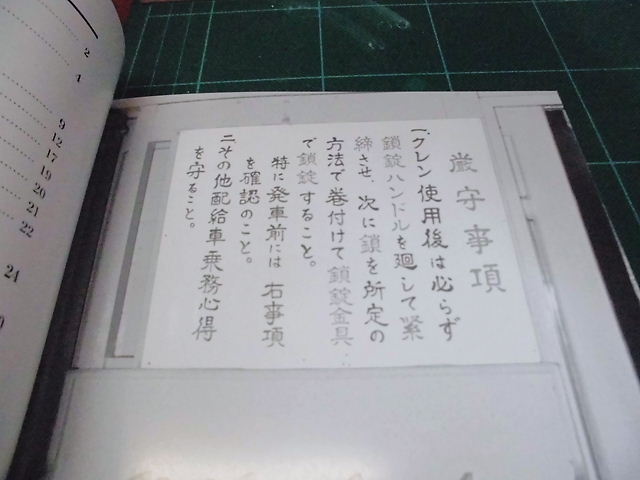 厳守事項
一、クレン使用後は必らず
鎖錠ハンドルを廻して緊
締させ、次に鎖を所定の
方法で巻付けて鎖錠金具
で鎖錠すること。
特に発車前には右事項
を確認のこと。
二、その他配給車乗務心得
を守ること。
2
4
9
12
17
19
20
21
22
24